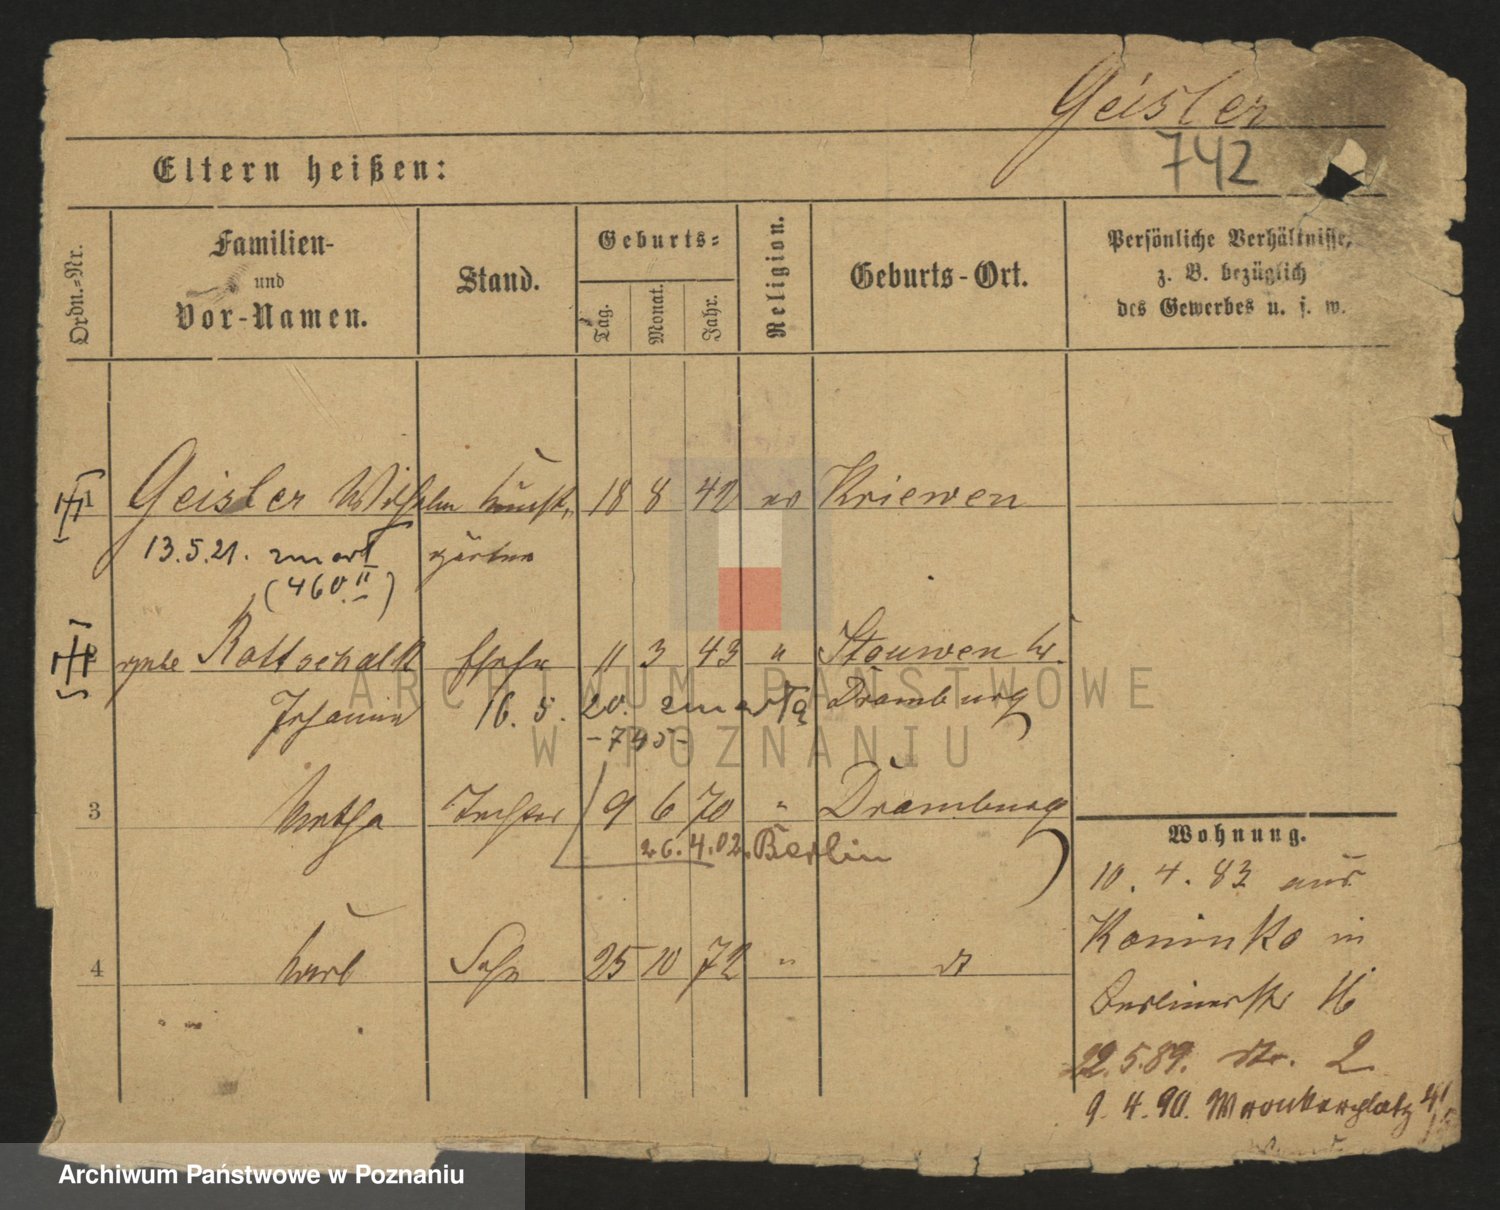 Geisler
742
Eltern heißen:
Ordn.-Nr.
Familien-
und
Vor-Namen.
Stand.
Geburts-
Tag.
Monat.
Jahr.
Religion.
Geburts-Ort.
Persönliche Verhältnisse,
z. B. bezüglich
des Gewerbes u. s. w.
1 Geisler Wilhelm Kunst- 18 8 42 ev Kriewen
13.5.21. zmarł gärtner
(460 II)
2 gebe Rottschalk Ehefr 11 3 43 " Stouwen Kr.
Johanna 16. 5. 20. zmarła Dramburg
-745-
3 Martha Tochter 9 6 70 " Dramburg
26.4.02. Berlin
4 Karl Sohn 25 10 72 "
Wohnung.
10. 4. 83 aus
Koninko in
Berlinerstr 16
22.5.89. str. 2
9. 4. 90. Wronkerplatz 4/1
ARCHIWUM PAŃSTWOWE
W POZNANIU
Archiwum Państwowe w Poznaniu